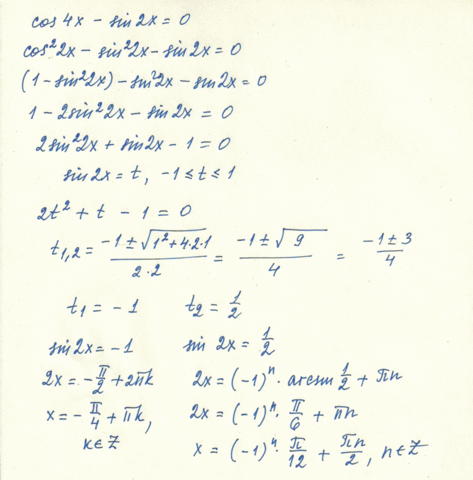 cos4x - sin2x = 0
cos²2x - sin²2x - sin2x = 0
(1 - sin²2x) - sin²2x - sin2x = 0
1 - 2sin²2x - sin2x = 0
2sin²2x + sin2x - 1 = 0
sin2x = t, -1 ≤ t ≤ 1
2t² + t - 1 = 0
t₁,₂ = (-1 ± √(1² + 4·2·1))/(2·2) = (-1 ± √9)/4 = (-1 ± 3)/4
t₁ = -1 t₂ = 1/2
sin2x = -1 sin 2x = 1/2
2x = -π/2 + 2πk 2x = (-1)ⁿ · arcsin 1/2 + πn
x = -π/4 + πk, 2x = (-1)ⁿ · π/6 + πn
k∈Z x = (-1)ⁿ · π/12 + πn/2, n∈Z